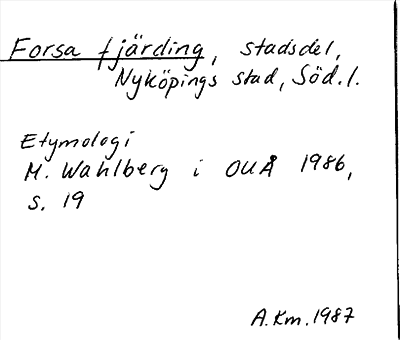 Forsa fjärding, stadsdel,
Nyköpings stad, Söd.l.
Etymologi
M. Wahlberg i OUÅ 1986,
s. 19
A.Km.1987